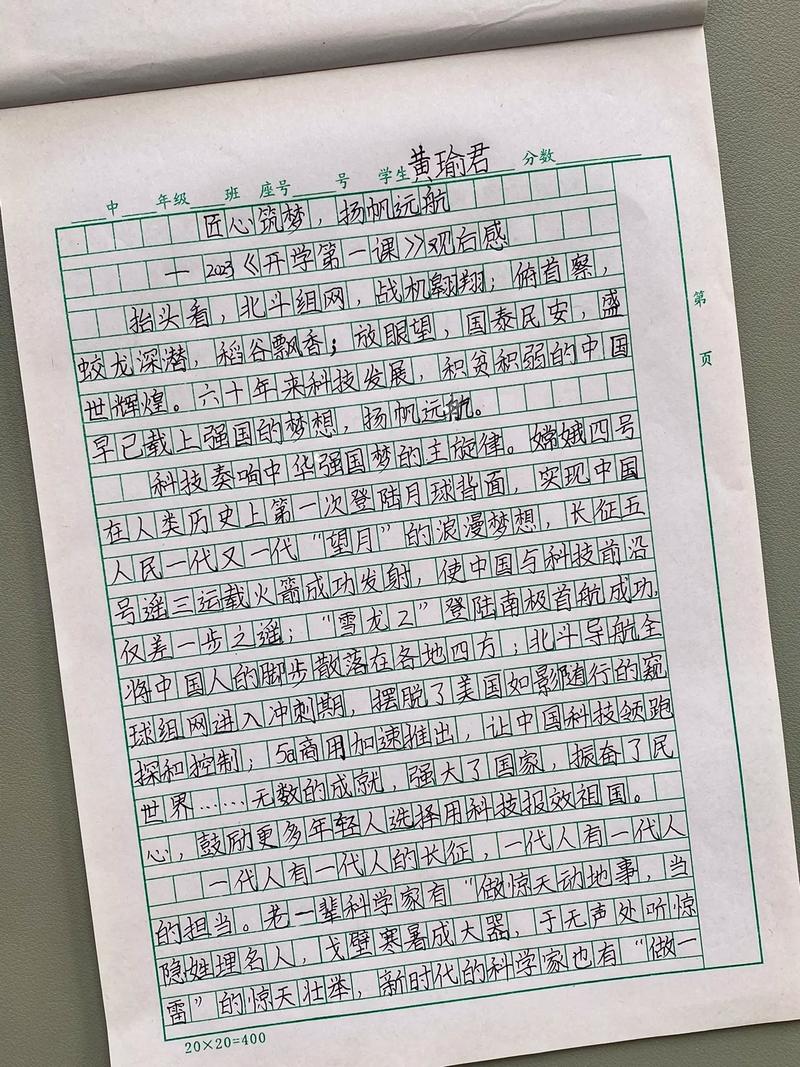 黄瑜君
中 年级 班 座号 号 学生 分数
匠心筑梦，扬帆远航
—2023《开学第一课》观后感
抬头看，北斗组网，战机翱翔；俯首察，
蛟龙深潜，稻谷飘香；放眼望，国泰民安，盛
世辉煌。六十年来科技发展，积贫积弱的中国
早已载上强国的梦想，扬帆远航。
科技奏响中华强国梦的主旋律。嫦娥四号
在人类历史上第一次登陆月球背面，实现中国
人民一代又一代“望月”的浪漫梦想，长征五
号遥三运载火箭成功发射，使中国与科技前沿
仅差一步之遥；“雪龙2”登陆南极首航成功，
将中国人的脚步散落在各地四方；北斗导航全
球组网进入冲刺期，摆脱了美国如影随行的窥
探和控制；5G商用加速推出，让中国科技领跑
世界……无数的成就，强大了国家，振奋了民
心，鼓励更多年轻人选择用科技报效祖国。
一代人有一代人的长征，一代人有一代人
的担当。老一辈科学家有“做惊天动地事，当
隐姓埋名人，戈壁寒暑成大器，于无声处听惊
雷”的惊天壮举，新时代的科学家也有“做一
第
页
20×20=400